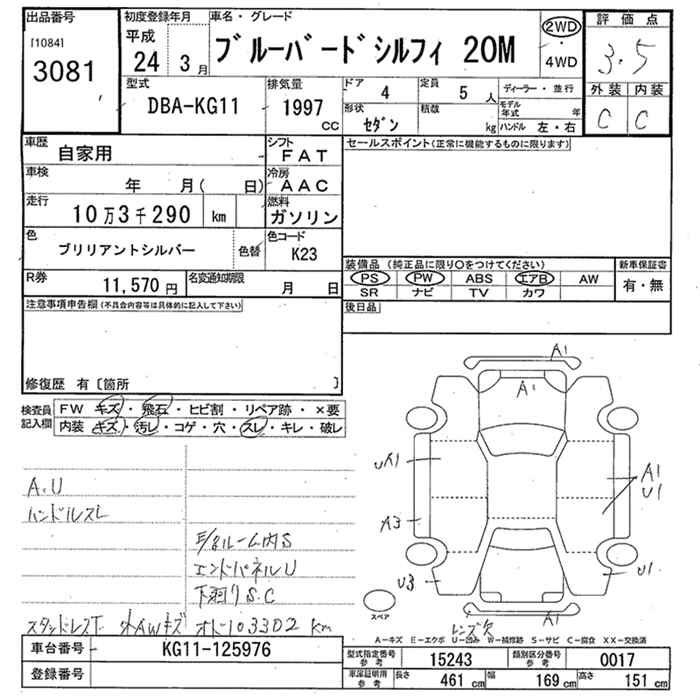 出品番号
[1084]
3081
初度登録年月
平成
24 3月
車名・グレード
ブルーバードシルフィ 20M
2WD
・
4WD
評価点
3.5
外装 内装
C C
型式
DBA-KG11
排気量
1997 CC
ドア 4
定員 5 人
形状 セダン
積数 kg
ディーラー・並行
モデル年式 年
ハンドル 左・右
車歴
自家用
シフト
FAT
車検
年 月( 日)
冷房
AAC
走行
10万3千290 km
燃料
ガソリン
色
ブリリアントシルバー
色替
色コード
K23
R券
11,570 円
名変通知期限
月 日
セールスポイント(正常に機能するものに限ります)
装備品 (純正品に限り○をつけてください)
新車保証書
PS PW ABS エアB AW
SR ナビ TV カワ
有・無
後日品
注意事項申告欄(不具合内容等は具体的に記入して下さい)
修復歴 有〔箇所 〕
検査員
記入欄
FW キズ・飛石・ヒビ割・リペア跡・×要
内装 キズ・汚レ・コゲ・穴・スレ・キレ・破レ
A.U
ハンドルスレ
ルーム内S
エンドパネルU
下廻りS.C
外AWキズ オド103302 km
A1
A1
UA1
A1
U1
A3
U3
U1
A1
レンズ欠
スペア
A―キズ E―エクボ U―凹み W―補修跡 S―サビ C―腐食 XX―交換済
車台番号
KG11-125976
登録番号
型式指定番号
参考
15243
類別区分番号
参考
0017
車庫証明用
参考
長さ 461 cm
幅 169 cm
高さ 151 cm